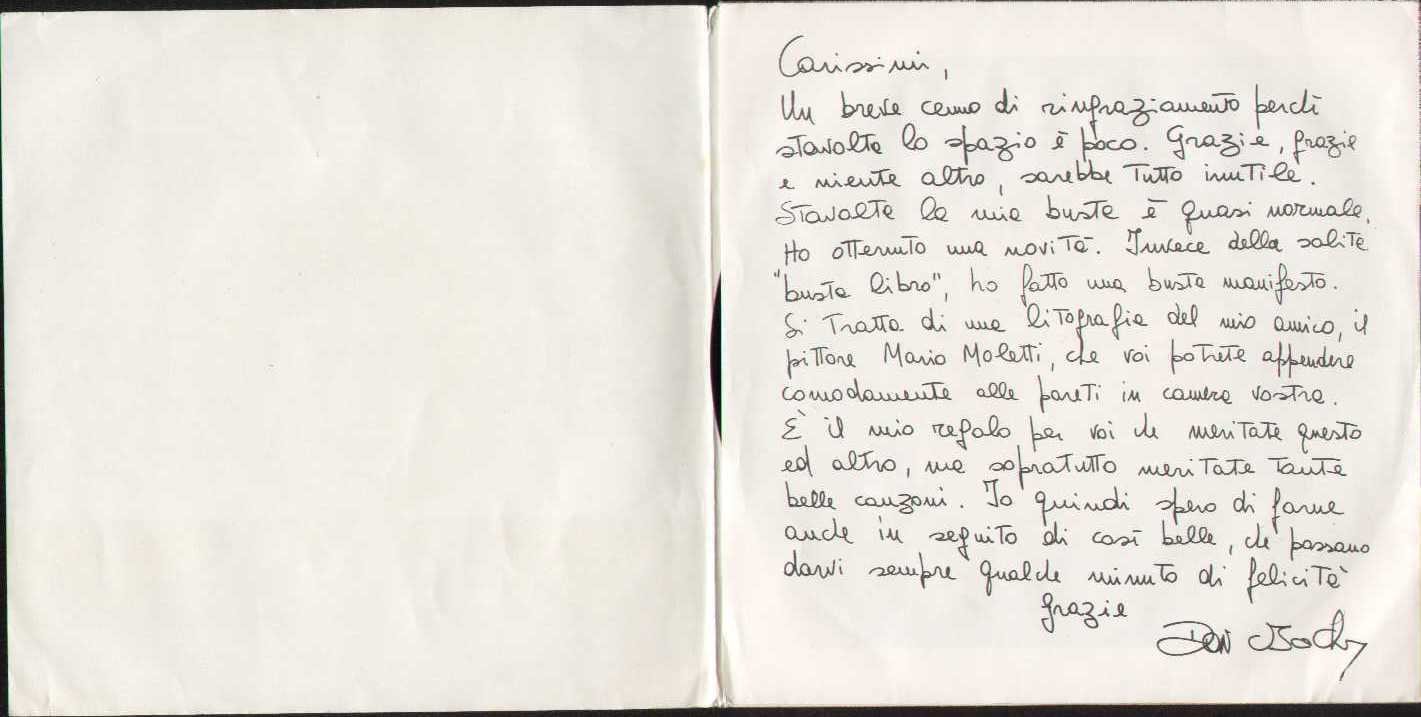 Carissimi,
Un breve cenno di ringraziamento perchè
stavolta lo spazio è poco. Grazie, grazie
e niente altro, sarebbe tutto inutile.
Stavolta la mia busta è quasi normale.
Ho ottenuto una novità. Invece della solita
"busta libro", ho fatto una busta manifesto.
Si tratta di una litografia del mio amico, il
pittore Mario Moletti, che voi potrete appendere
comodamente alle pareti in camera vostra.
È il mio regalo per voi che meritate questo
ed altro, ma sopratutto meritate tante
belle canzoni. Io quindi spero di farne
anche in seguito di così belle, che possano
darvi sempre qualche minuto di felicità
grazie
Don Backy